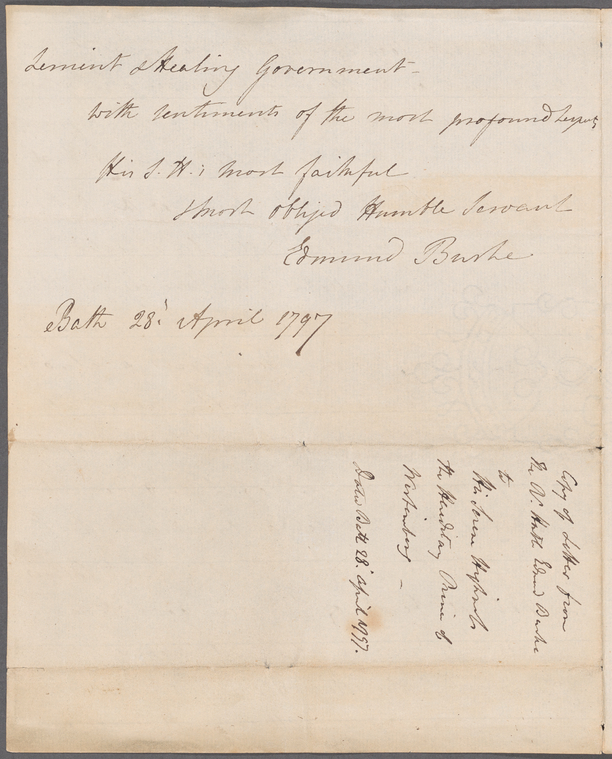 Lenient & Healing Government –
with sentiments of the most profound respect
His S. H.'s most faithful
& most obliged Humble Servant
Edmund Burke
Bath 28. April 1797
Copy of Letter from
the Rt. Honble Edmd Burke
to
His Serene Highness
the Hereditary Prince of
Wirtemberg –
Dated Bath 28. April 1797.